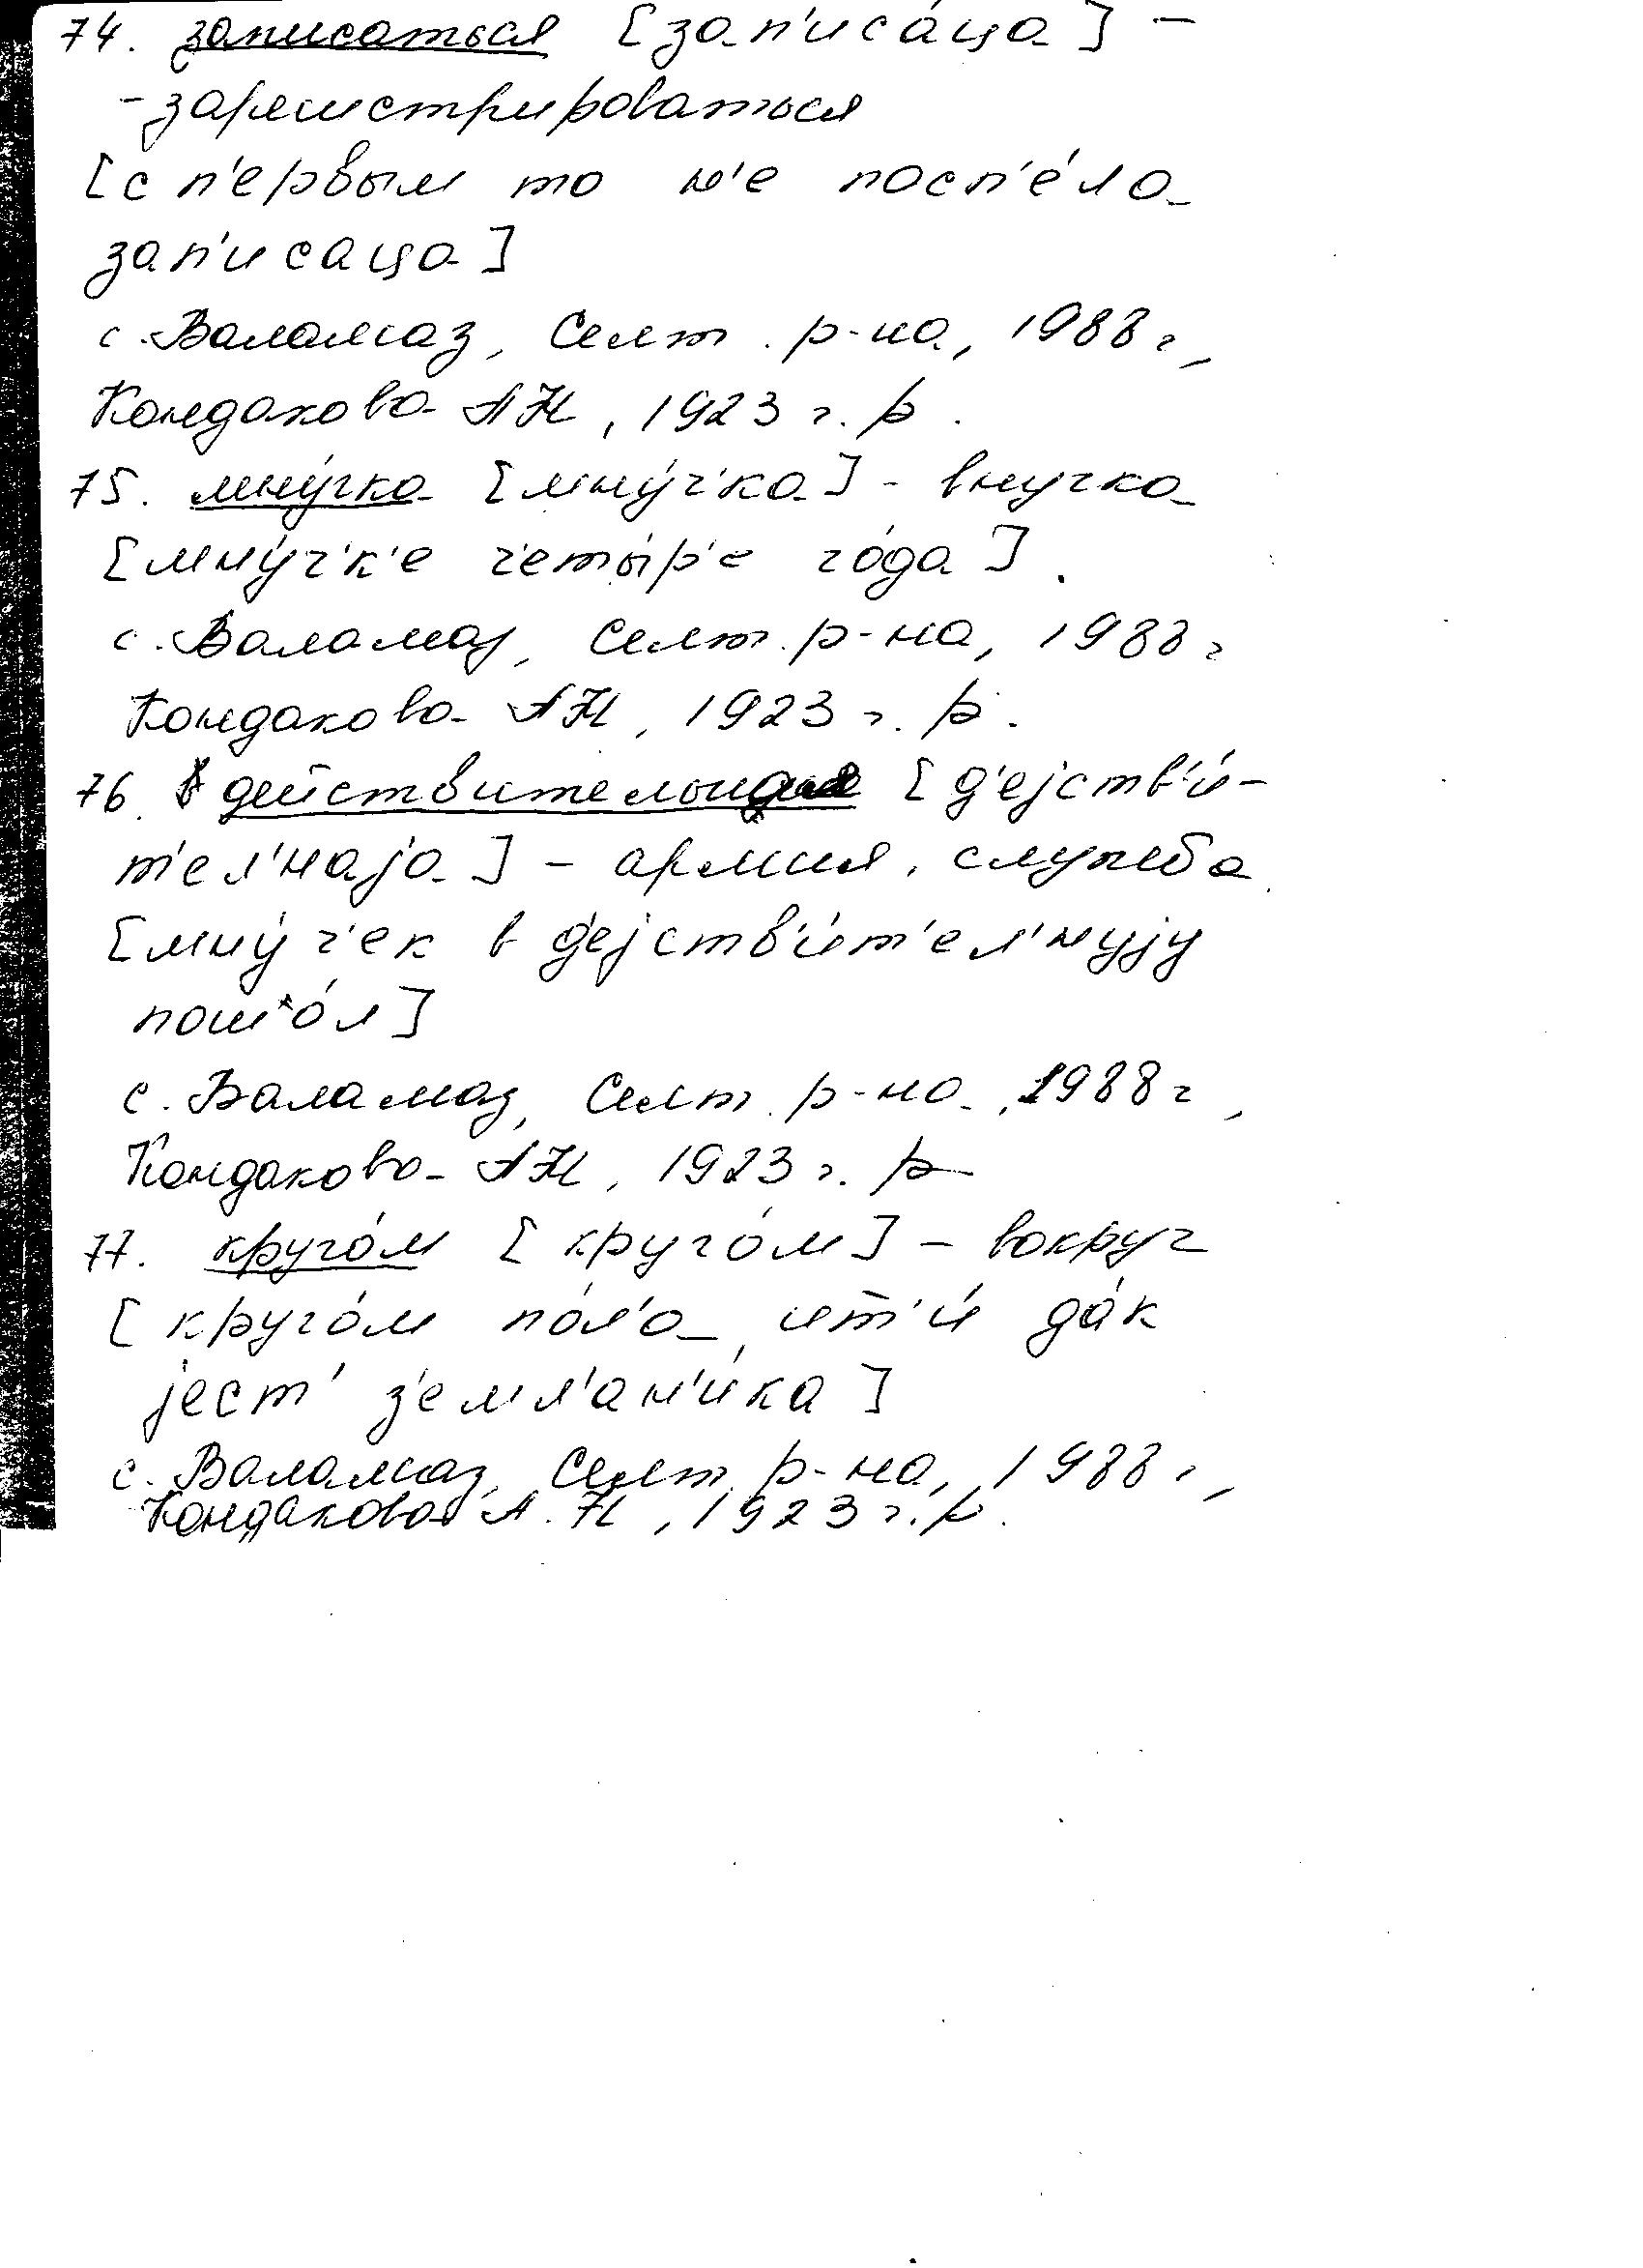 74. записаться [зап'иса́ца] –
- зарегистрироваться
[с п'ервым то н'е посп'е́ла
зап'исаца]
с. Валамаз, Селт. р-на, 1988 г,
Кондакова АН, 1923 г. р.
75. мну́чка [мну́ч'ка] - внучка
[мну́ч'к'е ч'еты́р'е го́да].
с. Валамаз, Селт. р-на, 1988 г
Кондакова АН, 1923 г. р.
76. действительная [д'ејств'и́-
т'ел'наја] – армия, служба
[мну́ч'ек в д'ејств'и́т'ел'нују
пош'о́л]
с. Валамаз, Селт. р-на, 1988 г,
Кондакова АН, 1923 г. р
77. круго́м [круго́м] – вокруг
[круго́м по́л'а ит̄'и́ да́к
јест' з'емл'ан'и́ка]
с. Валамаз, Селт. р-на, 1988 г,
Кондакова А. Н, 1923 г. р.